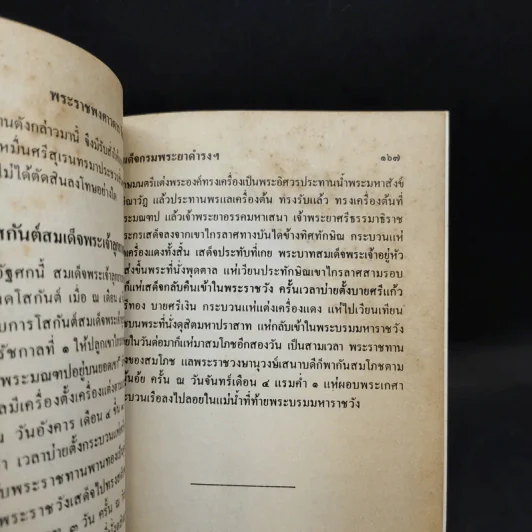 พระราชพงศาวดาร
านดังกล่าวมานี้ จึงมีรับสั่งให้
หมื่นศรีสุเรนทรมาประ
ไม่ได้ตัดสินลงโทษอย่างใด
สกันต์สมเด็จพระเจ้าลูก
รัฐศกนี้ สมเด็จพระเจ้าลูก
ดโสกันต์ เมื่อ ณ เดือน ๔
บการโสกันต์สมเด็จพระเจ้า
รัชกาลที่ ๑ ให้ปลูกเขาไกร
พระมณฑปอยู่บนยอดเขา
ลมีเครื่องตั้งเครื่องแต่ง
ณ วันอังคาร เดือน ๔ ขึ้น
า เวลาบ่ายตั้งกระบวนแห่
บพระราชทานพานทอง
ระราชวังเสด็จไปทรง
๓ วัน ครั้น ณ วัน
เด็จกรมพระยาดำรงฯ
๑๖๗
หมมนตรีแต่งพระองค์ทรงเครื่องเป็นพระอิศวรประทานน้ำพระมหาสังข์
แล้วประทานพรแลเครื่องต้น ทรงรับแล้ว ทรงเครื่องต้นที่
ระมณฑป แล้วเจ้าพระยาอรรคมหาเสนา เจ้าพระยาศรีธรรมาธิราช
กรเสด็จลงจากเขาไกรลาศทางบันไดข้างทิศทักษิณ กระบวนแห่
เครื่องแดงทั้งสิ้น เสด็จประทับที่เกย พระบาทสมเด็จพระเจ้าอยู่หัว
ส่งขึ้นพระที่นั่งพุดตาล แห่เวียนประทักษิณเขาไกรลาศสามรอบ
แห่เสด็จกลับคืนเข้าในพระราชวัง ครั้นเวลาบ่ายตั้งบายศรีแก้ว
รีทอง บายศรีเงิน กระบวนแห่แต่งเครื่องแดง แห่ไปเวียนเทียน
บนพระที่นั่งดุสิตมหาปราสาท แห่กลับเข้าในพระบรมมหาราชวัง
ายในวันต่อมาก็แห่มาสมโภชอีกสองวัน เป็นสามเวลา พระราชทาน
วงของสมโภช แลพระราชวงษานุวงษ์เสนาบดีก็พากันสมโภชตาม
น้อย ครั้น ณ วันจันทร์เดือน ๔ แรมค่ำ ๑ แห่ผอบพระเกศา
ะบวนเรือลงไปลอยในแม่น้ำที่ท้ายพระบรมมหาราชวัง